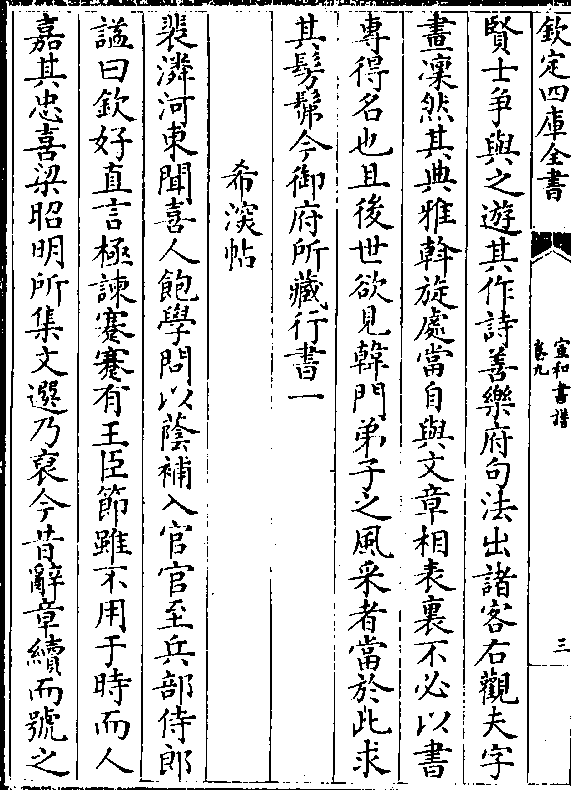 欽定四庫全書
宣和書譜
卷九
三
賢士爭與之遊其作詩善樂府句法出諸客右觀夫字
畫凜然其典雅斡旋處當自與文章相表裏不必以書
專得名也且後世欲見韓門弟子之風采者當於此求
其髣髴今御府所藏行書一
希深帖
裴潾河東聞喜人飽學問以蔭補入官官至兵部侍郎
諡曰欽好直言極諫蹇蹇有王臣節雖不用于時而人
嘉其忠喜梁昭明所集文選乃裒今昔辭章續而號之